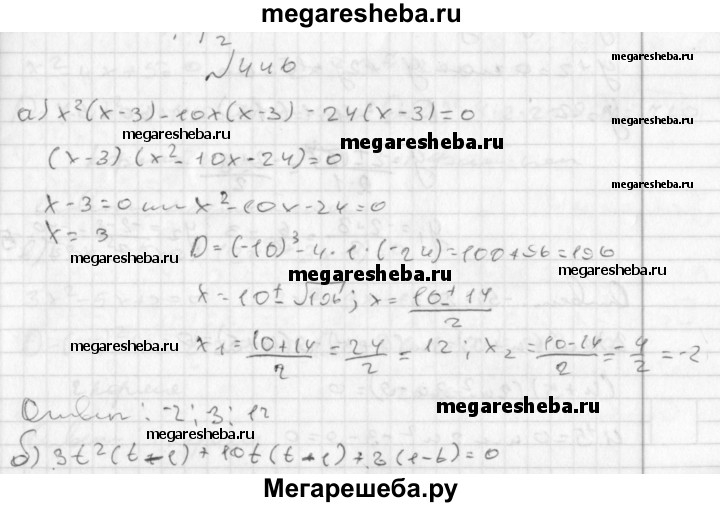 megaresheba.ru
№446
megaresheba.ru
а) x²(x-3)-10x(x-3)-24(x-3)=0
megaresheba.ru
megaresheba.ru
(x-3)(x²-10x-24)=0
megaresheba.ru
x-3=0 или x²-10x-24=0
x=3
D=(-10)³-4·1·(-24)=100+96=196
megaresheba.ru
megaresheba.ru
megaresheba.ru
x=10±√196; x=10±14/2
megaresheba.ru
megaresheba.ru
x1=10+14/2=24/2=12; x2=10-14/2=-4/2=-2
Ответ: -2; 3; 12
megaresheba.ru
megaresheba.ru
б) 3t²(t-1)+10t(t-1)+3(1-t)=0
Мегарешеба.ру